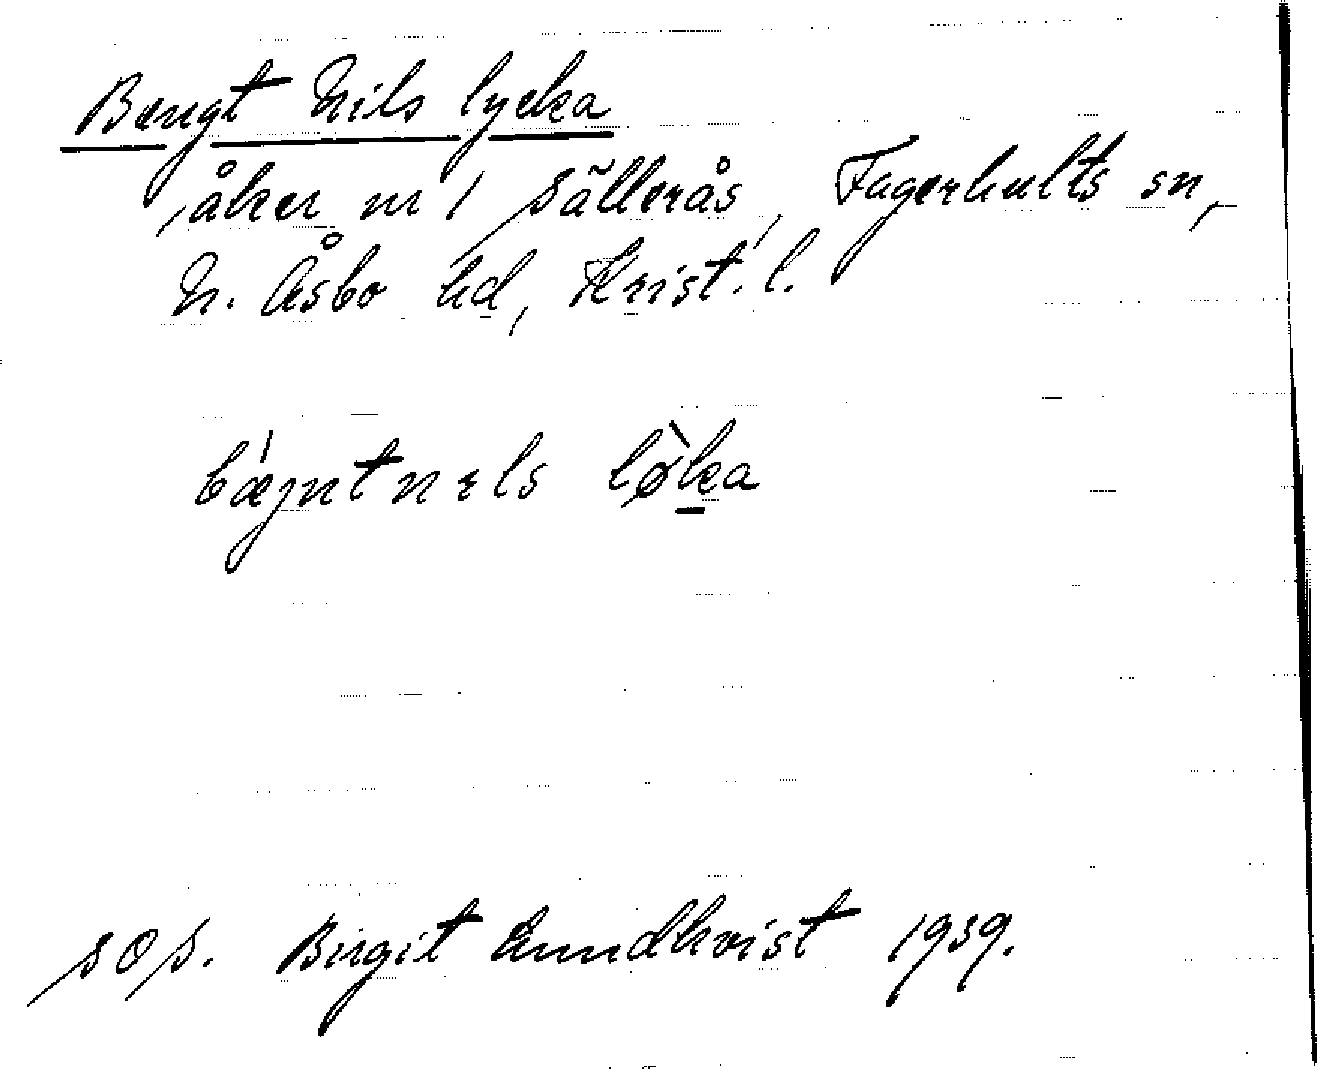 Bengt Nils lycka
, åker nr 1 Sällerås, Fagerhults sn,
N. Åsbo hd, Krist. l.
bǽjnt nıls lø̀ka
SOS. Birgit Lundkvist 1939.